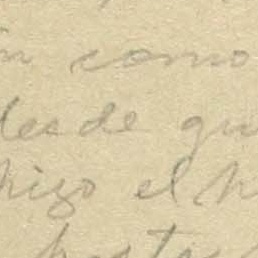 n como
desde qu
hizo el h